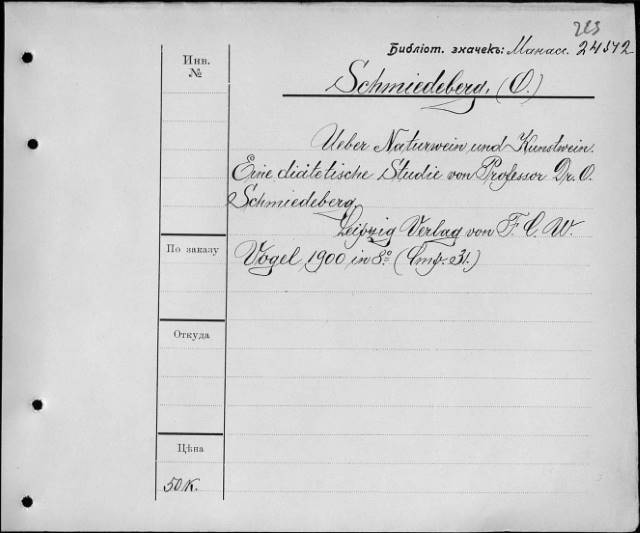 223
Библіот. значекъ: Манас. 24572
Инв.
№
Schmiedeberg, (O.)
Ueber Naturwein und Kunstwein.
Eine diätetische Studie von Professor Dr. O.
Schmiedeberg.
Leipzig Verlag von F. C. W.
По заказу
Vogel 1900 in 8.° (Стр. 31.)
Откуда
Цѣна
50 к.